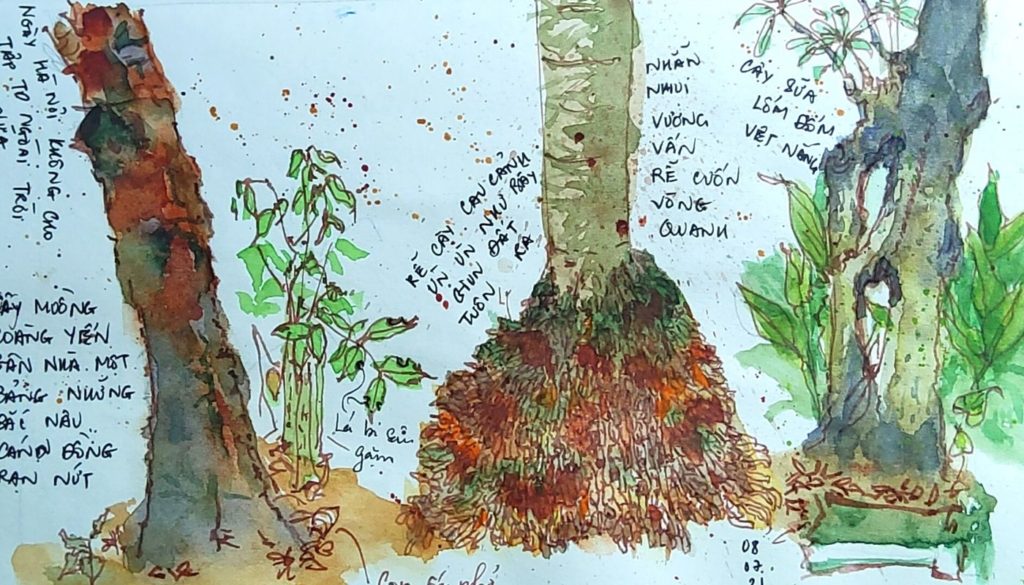 NGÀY HÀ NỘI KHÔNG CHO
TẬP TO NGOÀI TRỜI
NỮA
CÂY MUỒNG
HOÀNG YẾN
GẦN NHÀ MỘT
BẰNG NHỮNG
SẮC NÂU
CÁNH ĐỒNG
RẠN NỨT
Lá bị sâu
gặm
RỄ CÂY CAU CẢNH
ÙN ÙN NHƯ BẦY
GIUN ĐẤT
TUÔN RA
NHẪN
NHỤI
VƯƠNG
VẤN
RỄ CUỐN
VÒNG
QUANH
CÂY SỮA
LỐM ĐỐM
VỆT NẮNG
08
07
21
Con
nhỏ